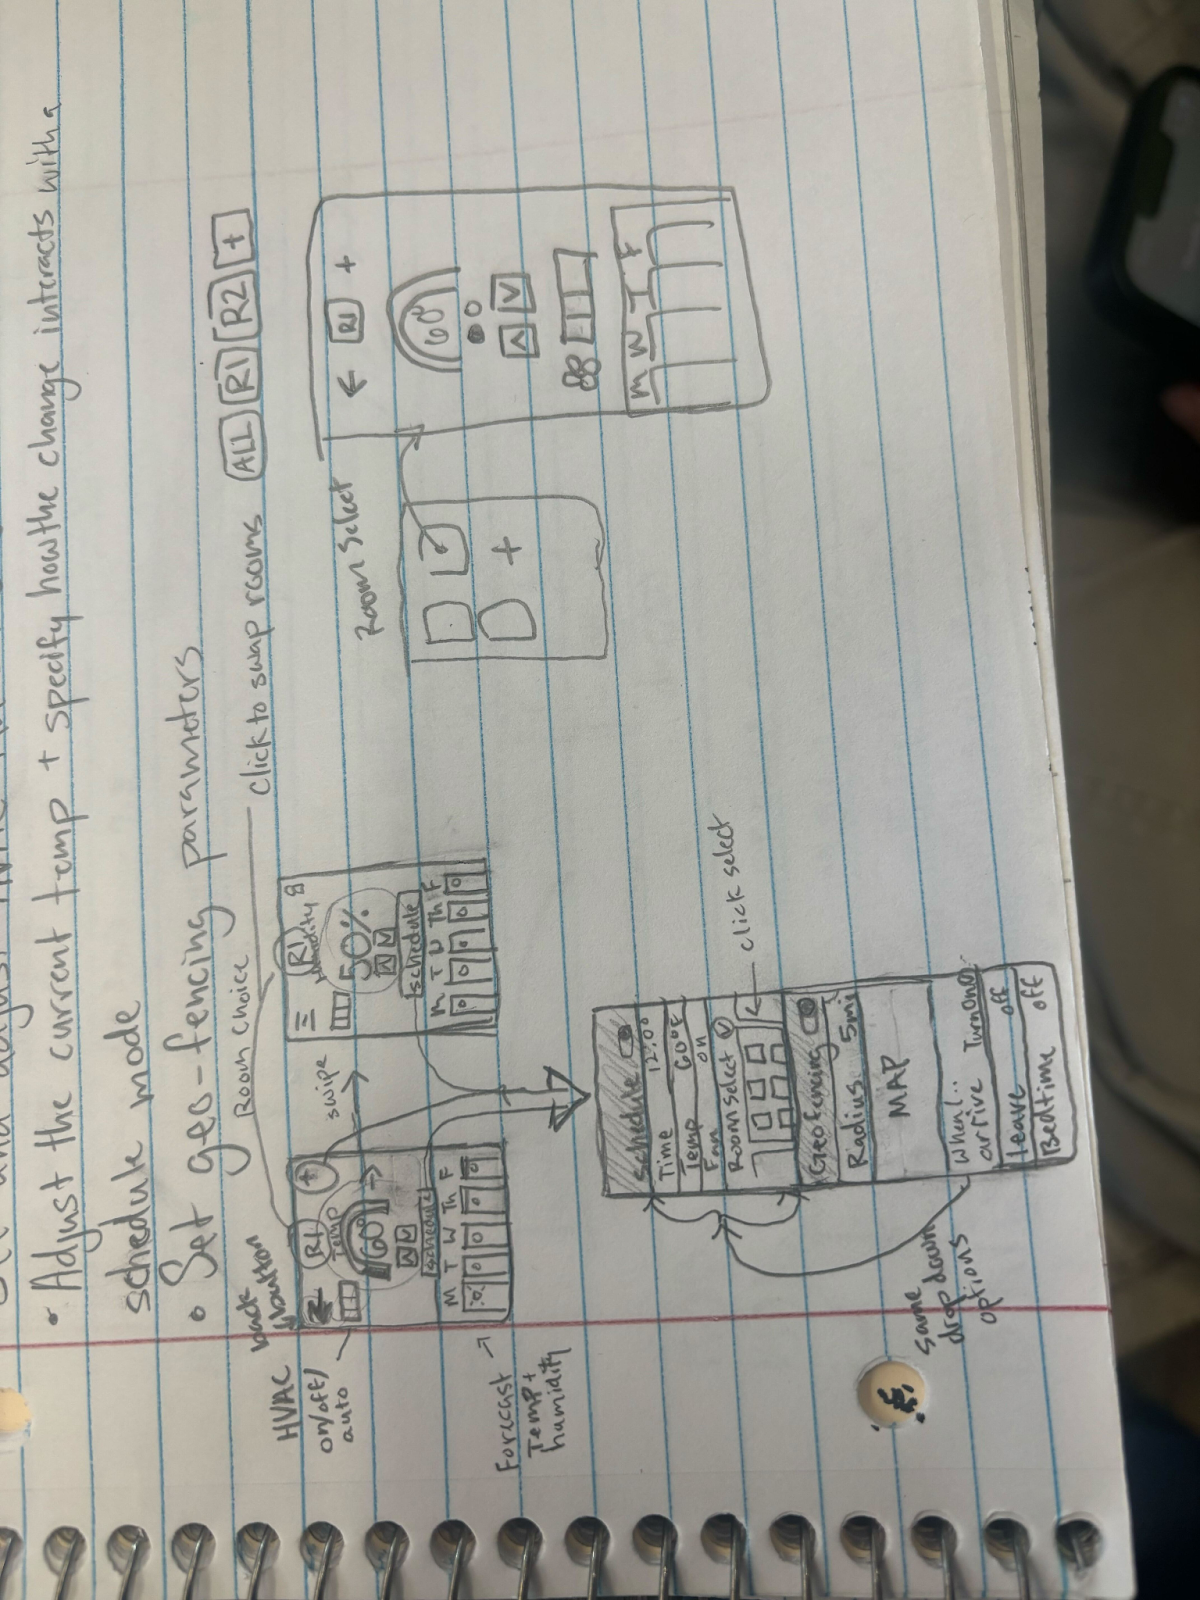 • Adjust the current temp + specify how the change interacts with a
schedule mode
• Set geo-fencing parameters
Room Choice
Click to swap rooms
ALL R1 R2 +
back
button
HVAC
on/off/
auto
R1 +
Temp
60°
schedule
M T W Th F
Forecast
Temp +
humidity
swipe
R1
Humidity
50%
schedule
M T W Th F
Room Select
+
R1 +
60°
M W T F
Schedule
Time 12:00
Temp 60°F
Fan on
Room Select
click select
Geofencing
Radius 5mi
MAP
When...
arrive Turn On
leave off
Bedtime off
same
drop down
options